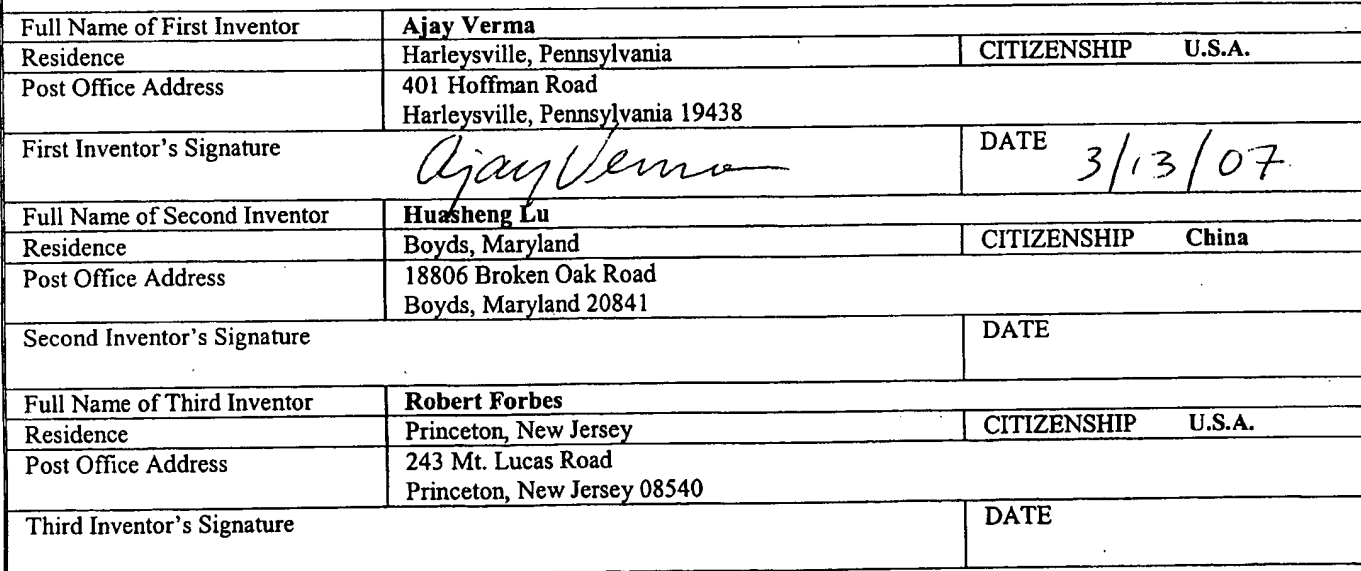 Full Name of First Inventor Ajay Verma
Residence Harleysville, Pennsylvania CITIZENSHIP U.S.A.
Post Office Address 401 Hoffman Road
Harleysville, Pennsylvania 19438
First Inventor's Signature Ajay Verma DATE 3/13/07
Full Name of Second Inventor Huasheng Lu
Residence Boyds, Maryland CITIZENSHIP China
Post Office Address 18806 Broken Oak Road
Boyds, Maryland 20841
Second Inventor's Signature DATE
Full Name of Third Inventor Robert Forbes
Residence Princeton, New Jersey CITIZENSHIP U.S.A.
Post Office Address 243 Mt. Lucas Road
Princeton, New Jersey 08540
Third Inventor's Signature DATE